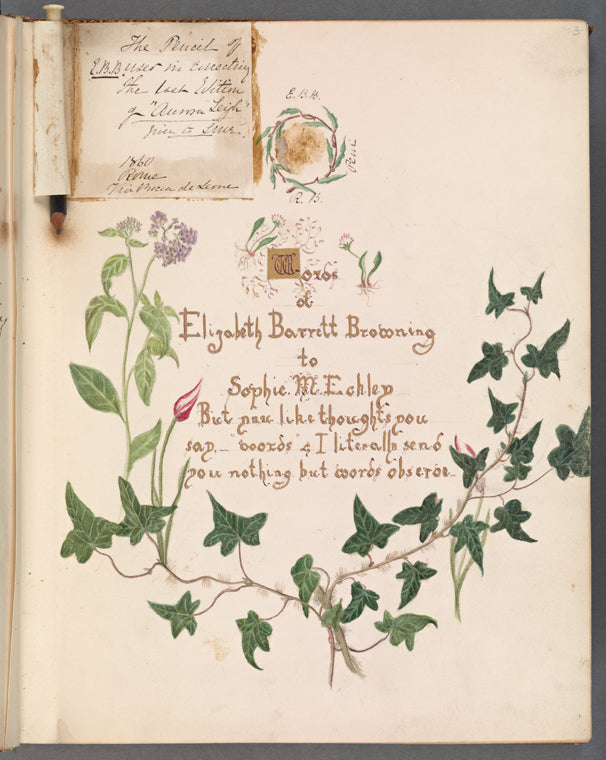 The Pencil of
E.B.B. used in correcting
the last Edition
of "Aurora Leigh"
given to SME.
1860
Rome
Via Bocca de Leone
3
E. B. B.
R. B.
Words
of
Elizabeth Barrett Browning
to
Sophie M. Eckley
But you like thoughts you
say, – words & I literally send
you nothing but words observe –